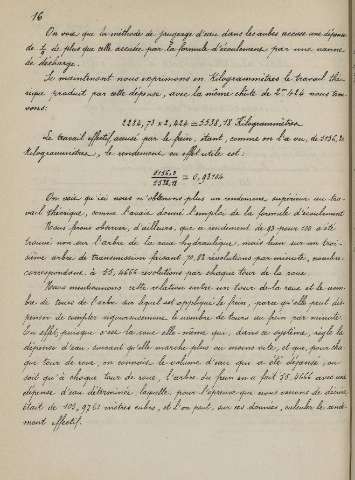 16
On voit que la méthode de jaugeage d'eau dans les aubes accuse une dépense
de plus que celle accusée par la formule d'écoulement par une vanne
de décharge.
Si maintenant nous exprimons en Kilogrammètres le travail théo-
rique produit par cette dépense, avec la même chute de 2m424 nous trou-
vons:
2284,73 x 2,424 = 5538,18 Kilogrammètres
Le travail effectif accusé par le frein, étant, comme on l'a vu, de 5156,2
Kilogrammètres, le rendement en effet utile est:
5156,2
5538,18 = 0,93104
On voit qu'ici nous n'obtenons plus un rendement supérieur au tra-
vail théorique, comme l'avait donné l'emploi de la formule d'écoulement
Nous ferons observer, d'ailleurs, que ce rendement de 93 pour 100 a été
trouvé non sur l'arbre de la roue hydraulique, mais bien sur un troi-
sième arbre de transmission faisant révolutions par minute, nombre
correspondant à 55,4666 révolutions par chaque tour de la roue.
Nous mentionnons cette relation entre un tour de la roue et le nom-
bre de tours de l'arbre sur lequel est appliqué le frein, parce qu'elle peut dis-
penser de compter rigoureusement le nombre de tours au frein par minute.
En effet, puisque c'est la roue elle-même qui, dans ce système, règle la
dépense d'eau, suivant qu'elle marche plus ou moins vite, et que, pour cha-
que tour de roue, on connaît le volume d'eau qui a été dépensé, on
sait qu'à chaque tour de roue, l'arbre du frein en a fait 55,4666 avec une
dépense d'eau déterminée, laquelle, pour l'épreuve que nous venons de décrire
était de 103,9763 mètres cubes, et l'on peut, sur ces données, calculer le rende-
ment effectif.